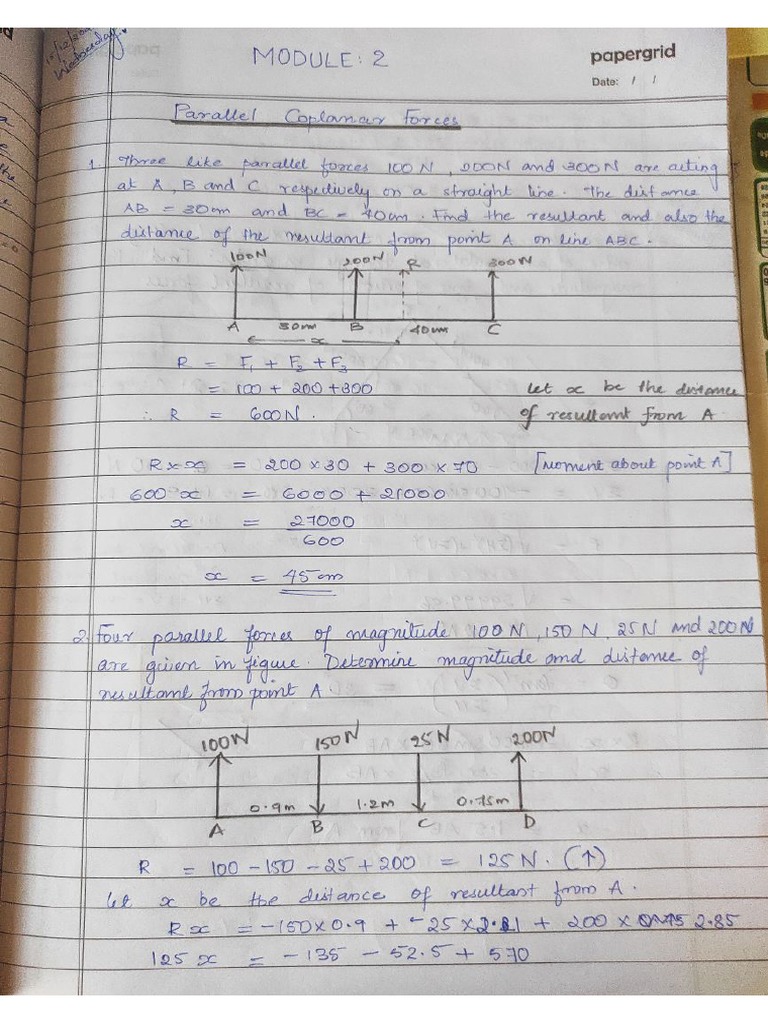 Wednesday
MODULE: 2
papergrid
Date: / /
Parallel Coplanar Forces
1. Three like parallel forces 100N, 200N and 300N are acting
at A, B and C respectively on a straight line. The distance
AB = 30cm and BC = 40cm. Find the resultant and also the
distance of the resultant from point A on line ABC.
100N 200N R 300N
A 30cm B 40cm C
x
R = F₁ + F₂ + F₃
= 100 + 200 + 300
Let x be the distance
∴ R = 600N.
of resultant from A
R × x = 200 × 30 + 300 × 70 [Moment about point A]
600 x = 6000 + 21000
x = 27000
600
x = 45cm
2. Four parallel forces of magnitude 100N, 150N, 25N and 200N
are given in figure. Determine magnitude and distance of
resultant from point A.
100N 150N 25N 200N
0.9m 1.2m 0.75m
A B C D
R = 100 - 150 - 25 + 200 = 125N. (↑)
Let x be the distance of resultant from A.
Rx = -150 × 0.9 + -25 × 2.1 + 200 × 2.85
125 x = -135 - 52.5 + 570